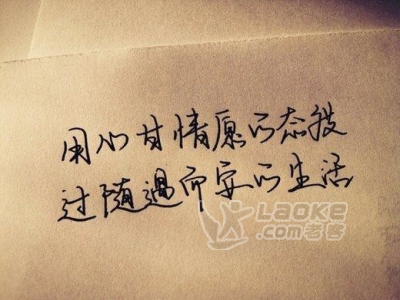 用心甘情愿的态度
过随遇而安的生活
LAOKE
.com老客